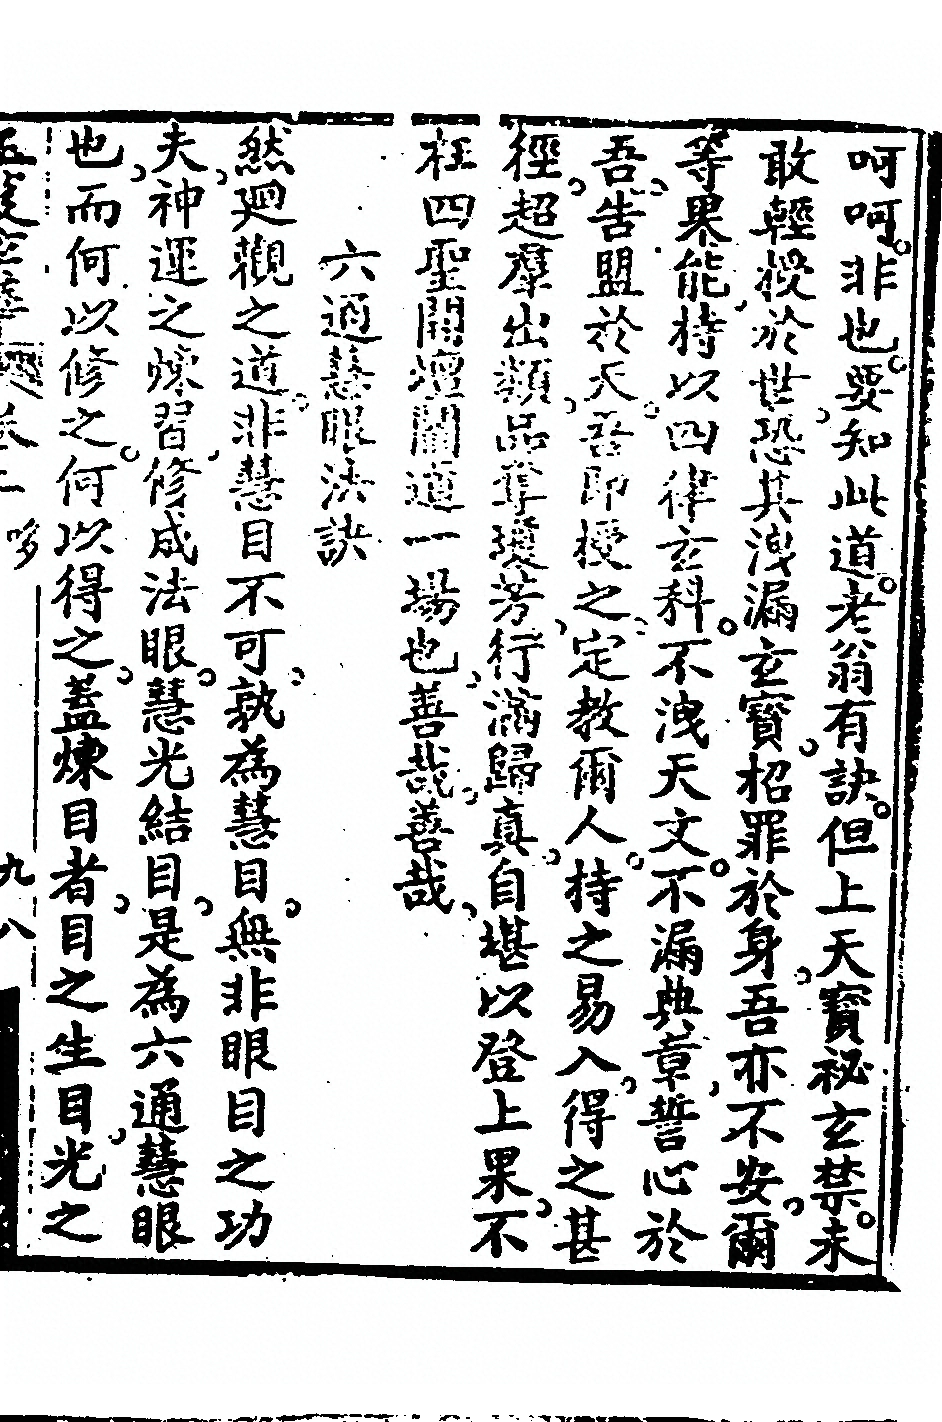 呵呵非也要知此道老翁有訣但上天寶祕玄禁未
敢輕授於世恐其洩漏玄寶招罪於身吾亦不安爾
等果能持以四律玄科不洩天文不漏典章誓心於
吾告盟於天吾即授之定教爾人持之易入得之甚
徑超羣出類品奪瓊芳行滿歸真自堪以登上果不
枉四聖開壇闡道一場也善哉善哉
六通慧眼法訣
然廻觀之道非慧目不可孰為慧目無非眼目之功
夫神運之煉習修成法眼慧光結目是為六通慧眼
也而何以修之何以得之蓋煉目者目之生目光之
九八